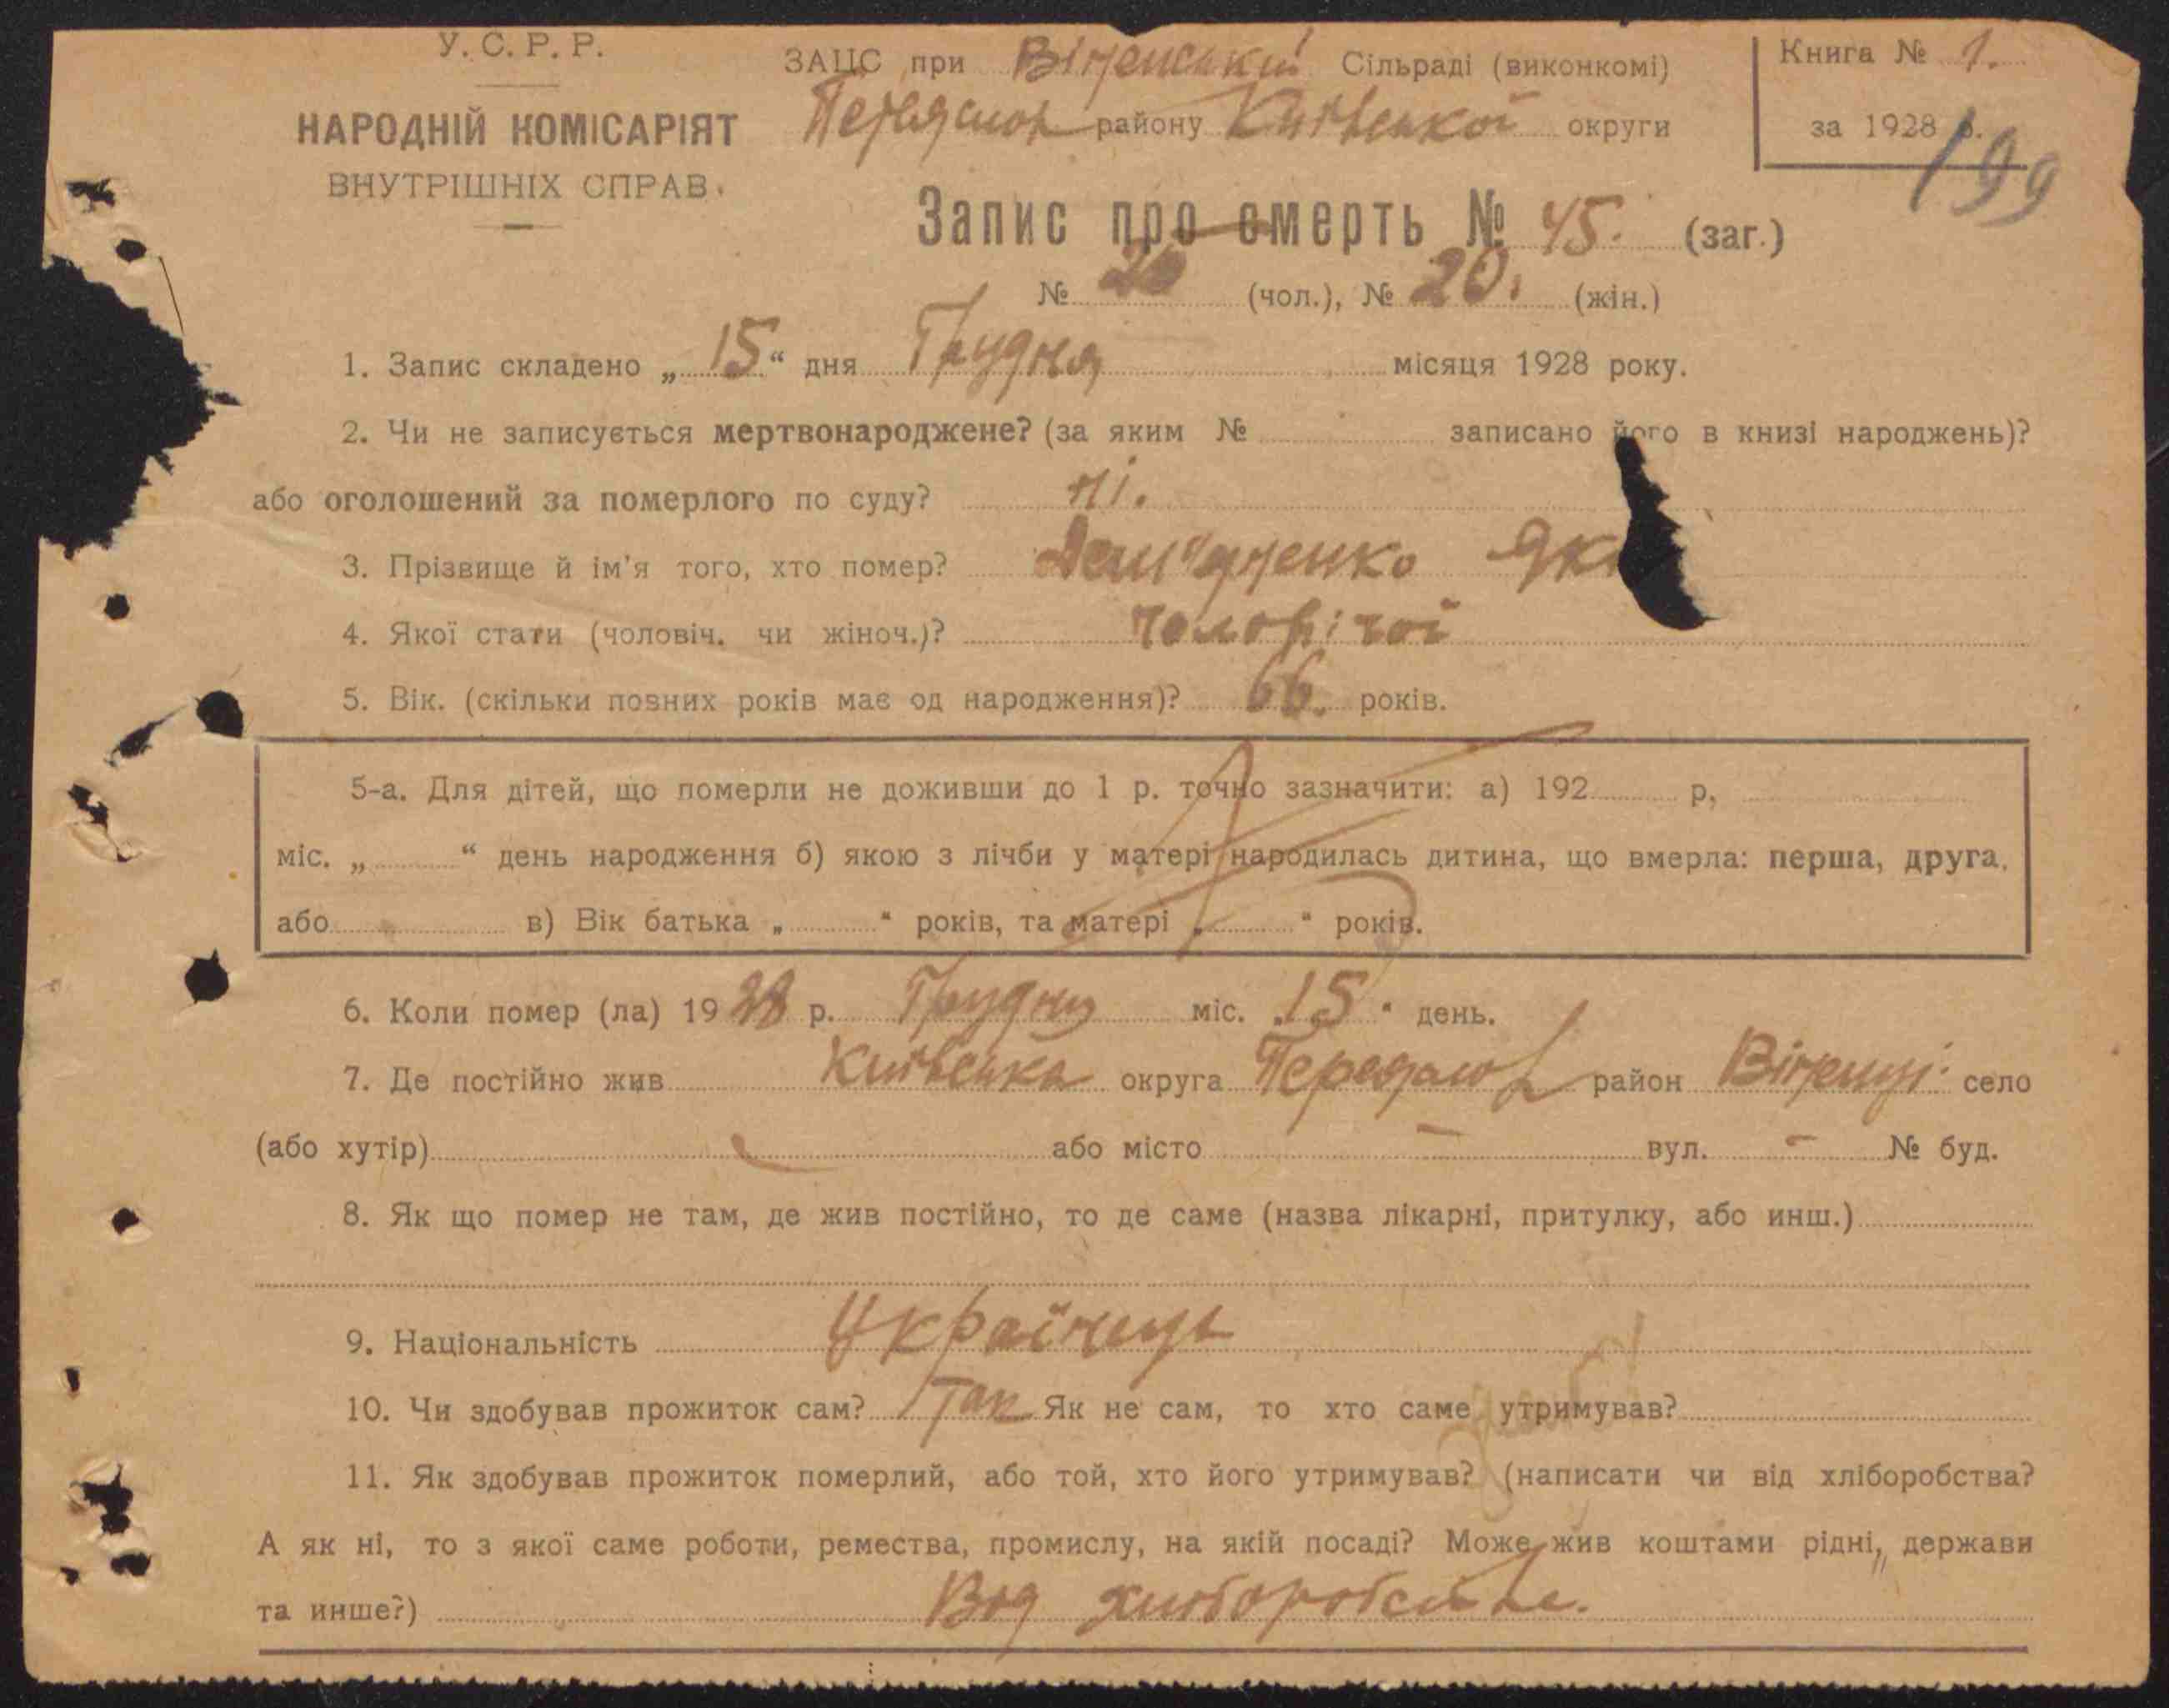 У. С. Р. Р.
НАРОДНІЙ КОМІСАРІЯТ
ВНУТРІШНІХ СПРАВ.
ЗАЦС при Віненський Сільраді (виконкомі)
Переяслов району Київської округи
Книга № 1.
за 1928 р.
199
Запис про смерть № 45. (заг.)
№ (чол.), № 20. (жін.)
1. Запис складено „ 15 “ дня Грудня місяця 1928 року.
2. Чи не записується мертвонароджене? (за яким № записано його в книзі народжень)?
або оголошений за померлого по суду? ні.
3. Прізвище й ім'я того, хто помер? Дем'яненко Як
4. Якої стати (чоловіч. чи жіноч.)? чоловічої
5. Вік. (скільки повних років має од народження)? 66. років.
5-а. Для дітей, що померли не доживши до 1 р. точно зазначити: а) 192 р,
міс. „ “ день народження б) якою з лічби у матері народилась дитина, що вмерла: перша, друга,
або в) Вік батька „ “ років, та матері „ “ років.
6. Коли помер (ла) 1928 р. Грудня міс. „15“ день.
7. Де постійно жив Київська округа Переяслов район Віненці село
(або хутір) або місто — вул. - № буд.
8. Як що помер не там, де жив постійно, то де саме (назва лікарні, притулку, або инш.)
9. Національність Українець
10. Чи здобував прожиток сам? Так Як не сам, то хто саме утримував?
11. Як здобував прожиток померлий, або той, хто його утримував? (написати чи від хліборобства?
А як ні, то з якої саме роботи, ремества, промислу, на якій посаді? Може жив коштами рідні, держави
та инше?) Від хліборобства.